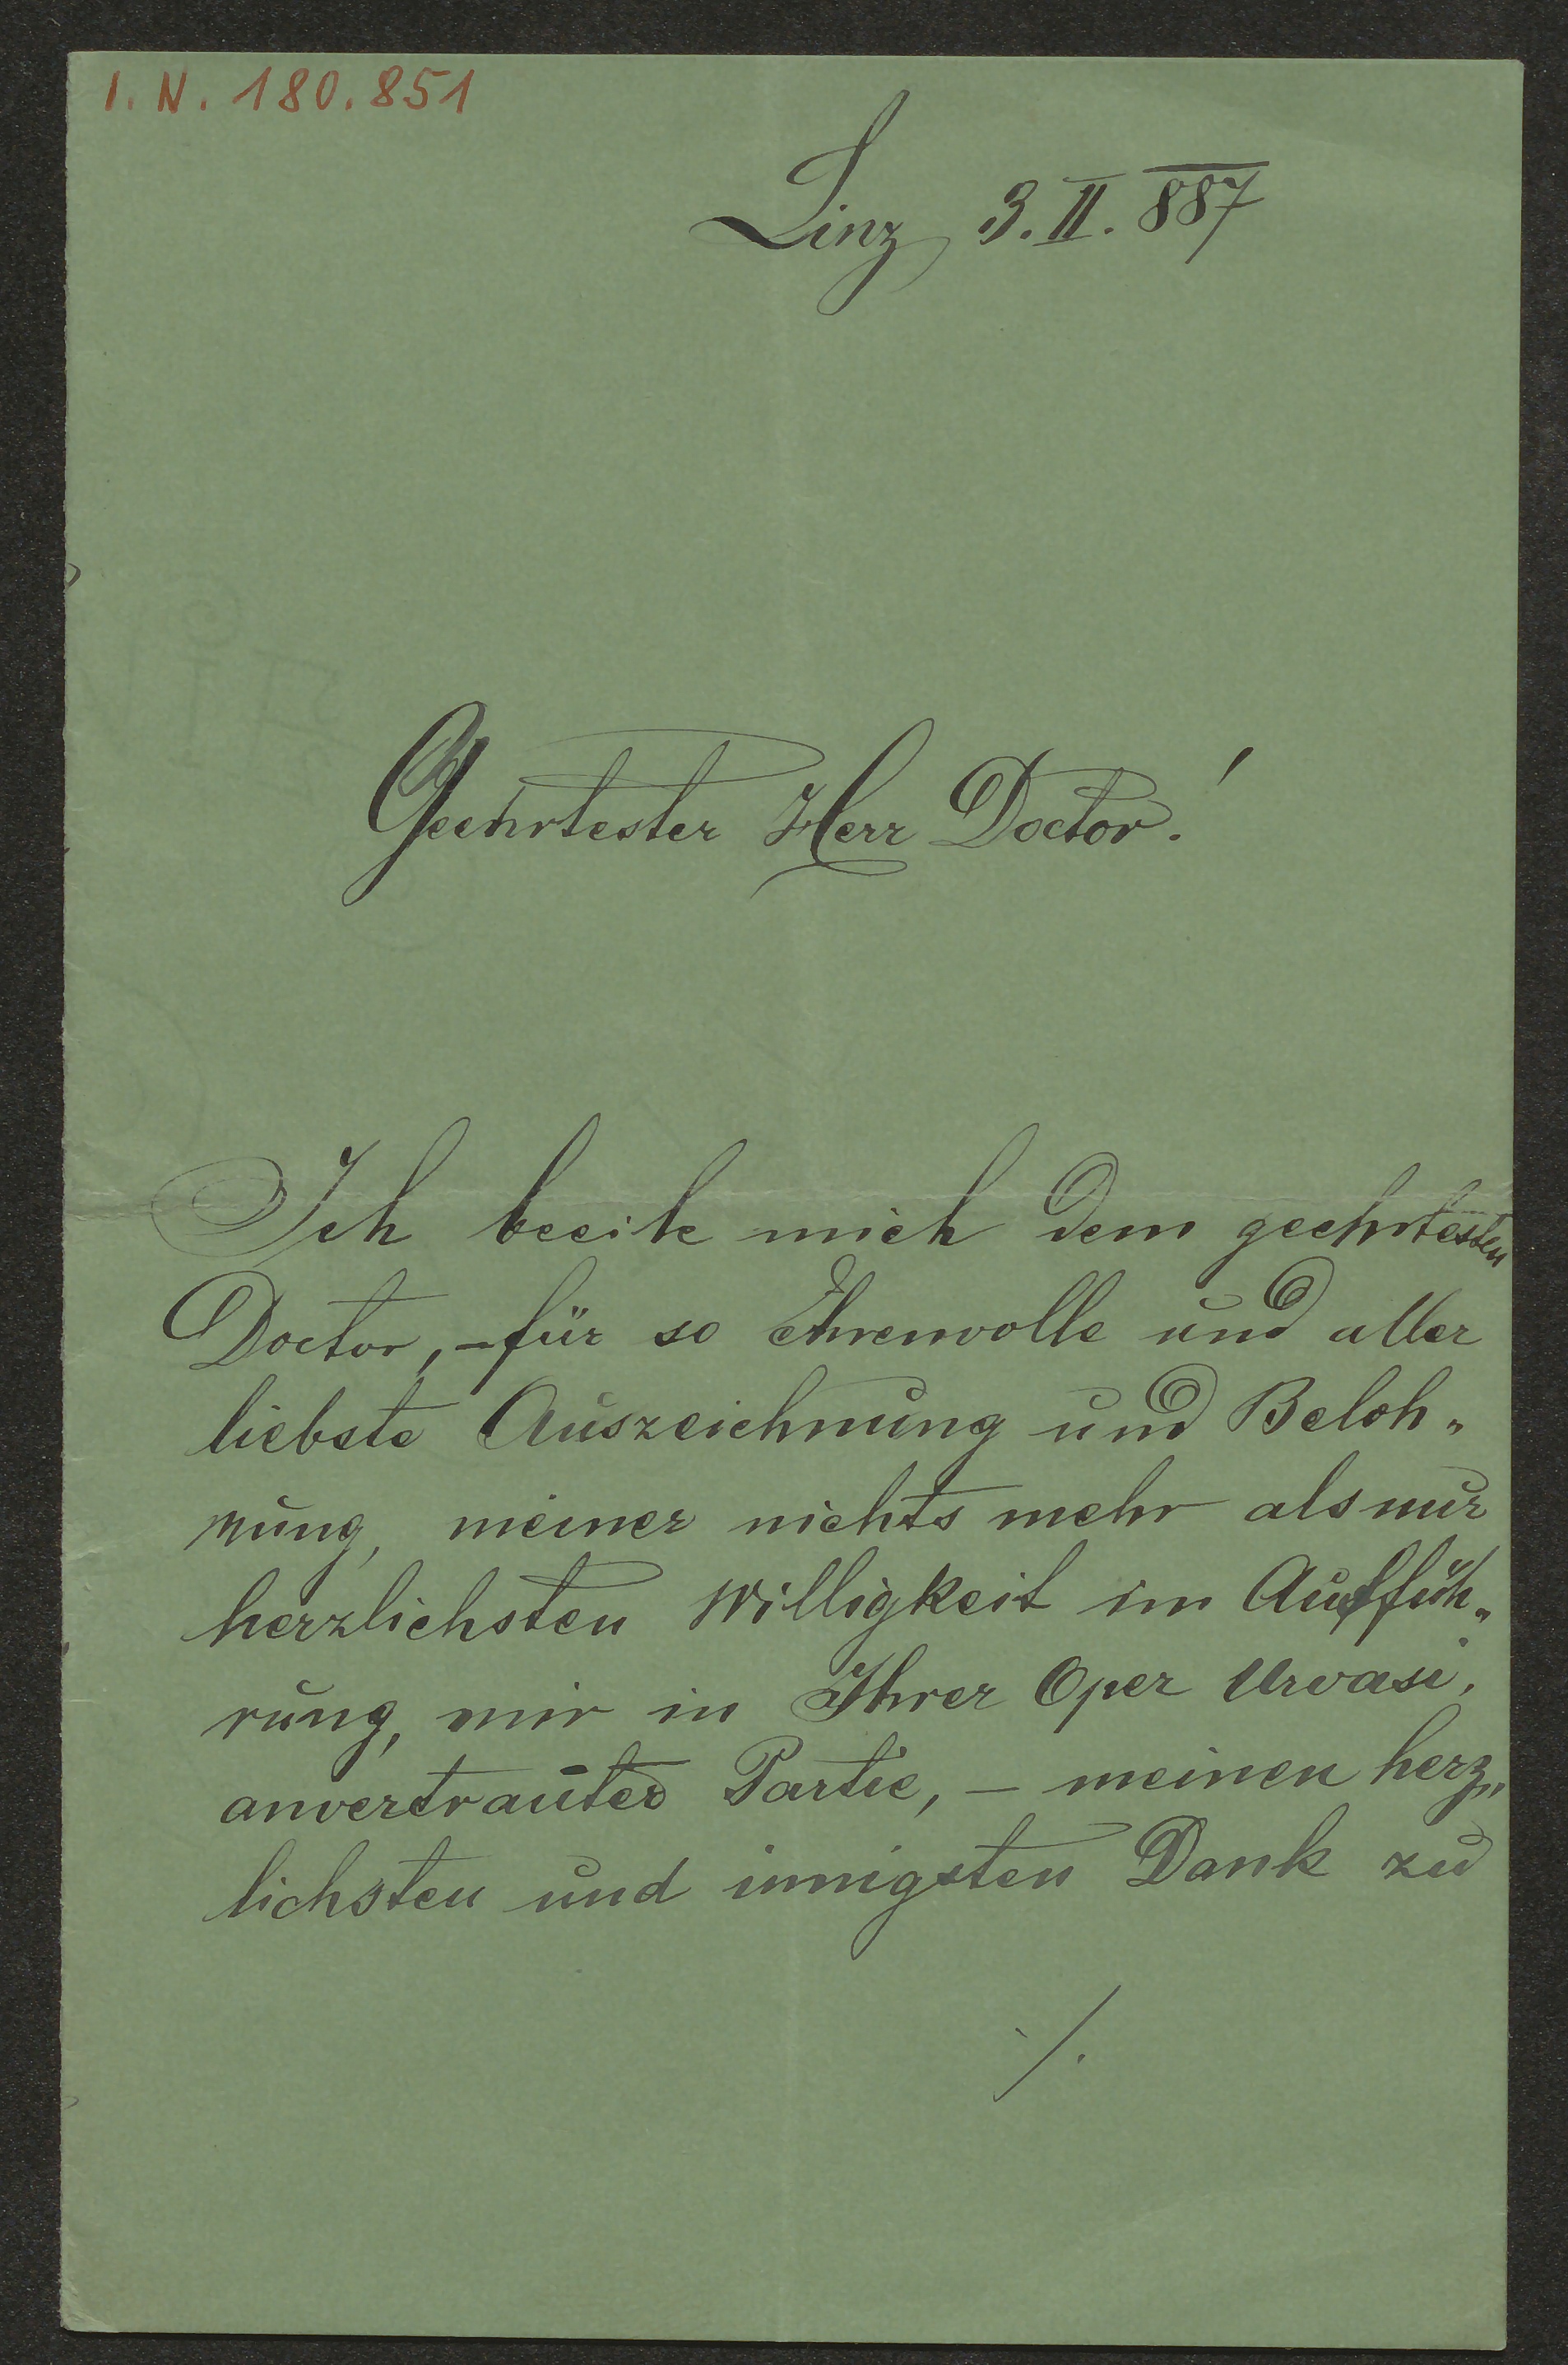 I. N. 180.851
Linz 3. II. 887
Geehrtester Herr Doctor!
Ich beeile mich dem geehrtesten
Doctor, – für so Ehrenvolle und aller
liebste Auszeichnung und Beloh„
nung, meiner nichts mehr als nur
herzlichsten Willigkeit im Auffüh„
rung, mir in Ihrer Oper Urvasi,
anvertrauter Partie, – meinen herz„
lichsten und innigsten Dank zu
./.